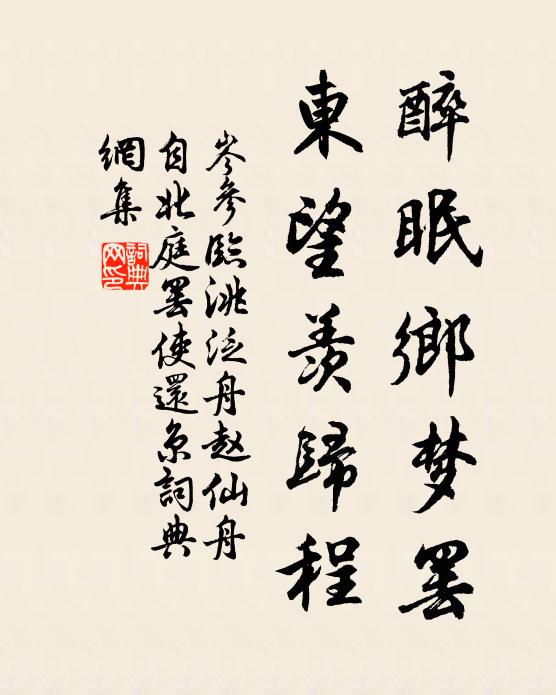 醉眠鄉梦罷
東望羨歸程
岑參臨洮泛舟赵仙舟
自北庭罢使還京詞典
網集
詞典网印